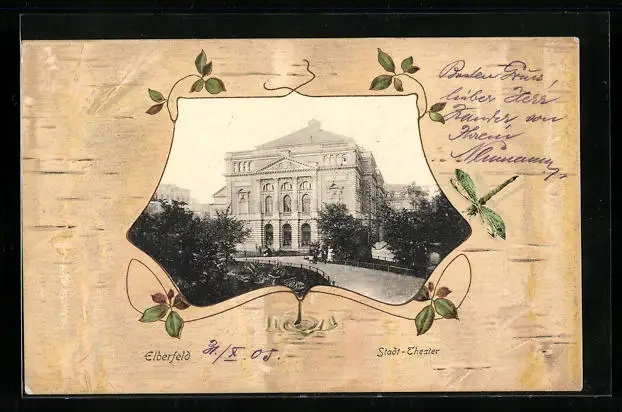 Besten Gruss,
lieber Herr
Zander von
Ihrem
Neumann
Elberfeld 21./X 05.
Stadt-Theater